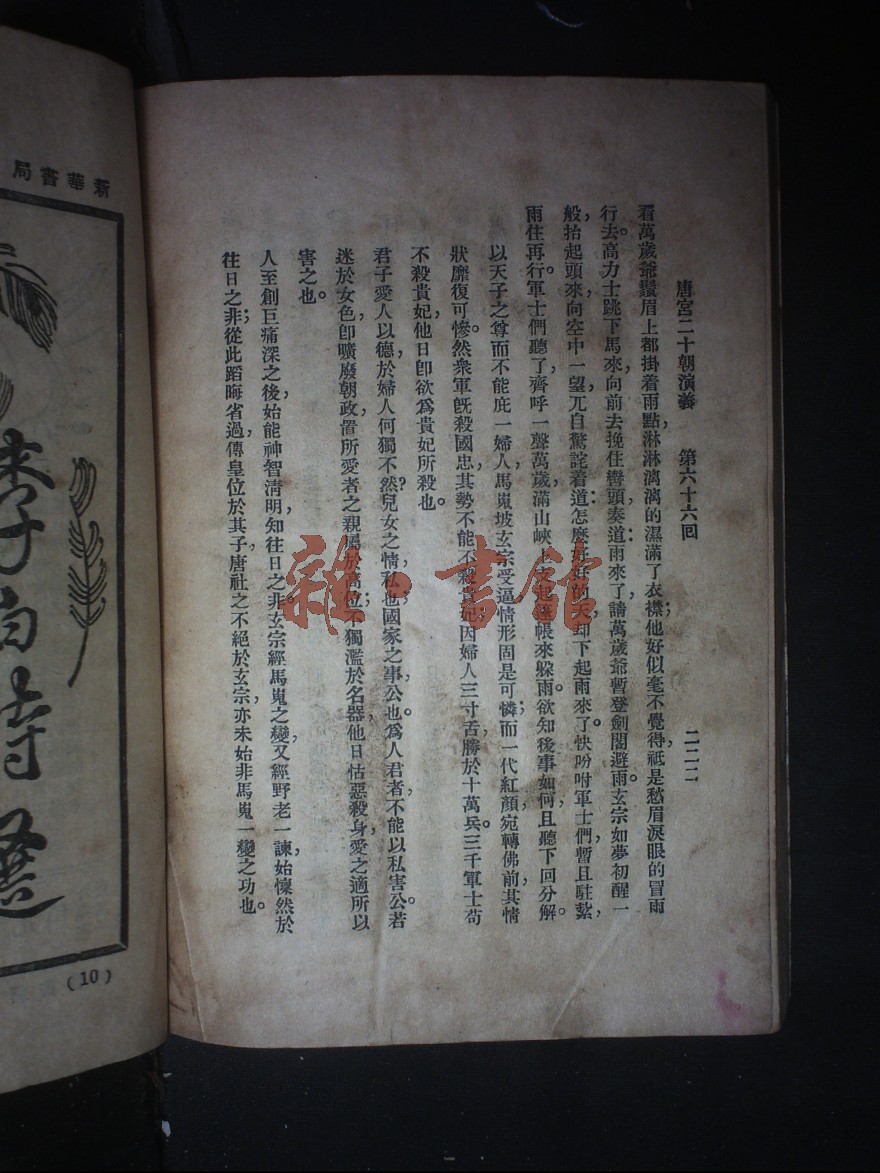 唐宮二十朝演義　第六十六回　二二二
看萬歲爺鬚眉上都掛着雨點，淋淋漓漓的濕滿了衣襟；他好似毫不覺得，祇是愁眉淚眼的冒雨
行去。高力士跳下馬來，向前去挽住轡頭，奏道：雨來了，請萬歲爺暫登劍閣避雨。玄宗如夢初醒一
般，抬起頭來，向空中一望，兀自驚詫着道：怎麼好好的天，却下起雨來了。快吩咐軍士們，暫且駐紮，
雨住再行。軍士們聽了，齊呼一聲萬歲，滿山峽上支起篷帳來躲雨。欲知後事如何，且聽下回分解。
以天子之尊，而不能庇一婦人，馬嵬坡玄宗受逼情形，固是可憐；而一代紅顏，宛轉佛前，其情
狀靡復可慘。然衆軍既殺國忠，其勢不能不殺貴妃，因婦人三寸舌，勝於十萬兵。三千軍士，苟
不殺貴妃，他日卽欲爲貴妃所殺也。
君子愛人以德，於婦人何獨不然？兒女之情，私也；國家之事，公也。爲人君者，不能以私害公，若
迷於女色，卽曠廢朝政，置所愛者之親屬於高位；不獨濫於名器，他日怙惡殺身，愛之適所以
害之也。
人至創巨痛深之後，始能神智清明，知往日之非。玄宗經馬嵬之變，又經野老一諫，始懍然於
往日之非；從此蹈晦省過，傳皇位於其子，唐社之不絕於玄宗，亦未始非馬嵬一變之功也。
新華書局
李白詩選
(10)
雜·書館